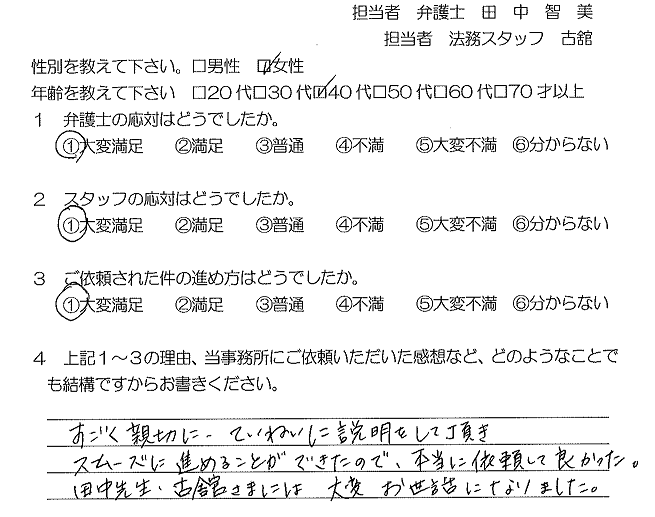 担当者 弁護士 田 中 智 美
担当者 法務スタッフ 古舘
性別を教えて下さい。□男性 ☑女性
年齢を教えて下さい □20代□30代☑40代□50代□60代□70才以上
1 弁護士の応対はどうでしたか。
①大変満足 ②満足 ③普通 ④不満 ⑤大変不満 ⑥分からない
2 スタッフの応対はどうでしたか。
①大変満足 ②満足 ③普通 ④不満 ⑤大変不満 ⑥分からない
3 ご依頼された件の進め方はどうでしたか。
①大変満足 ②満足 ③普通 ④不満 ⑤大変不満 ⑥分からない
4 上記1～3の理由、当事務所にご依頼いただいた感想など、どのようなことで
も結構ですからお書きください。
すごく親切に、ていねいに説明をして頂き
スムーズに進めることができたので、本当に依頼して良かった。
田中先生、古舘さまには 大変 お世話になりました。